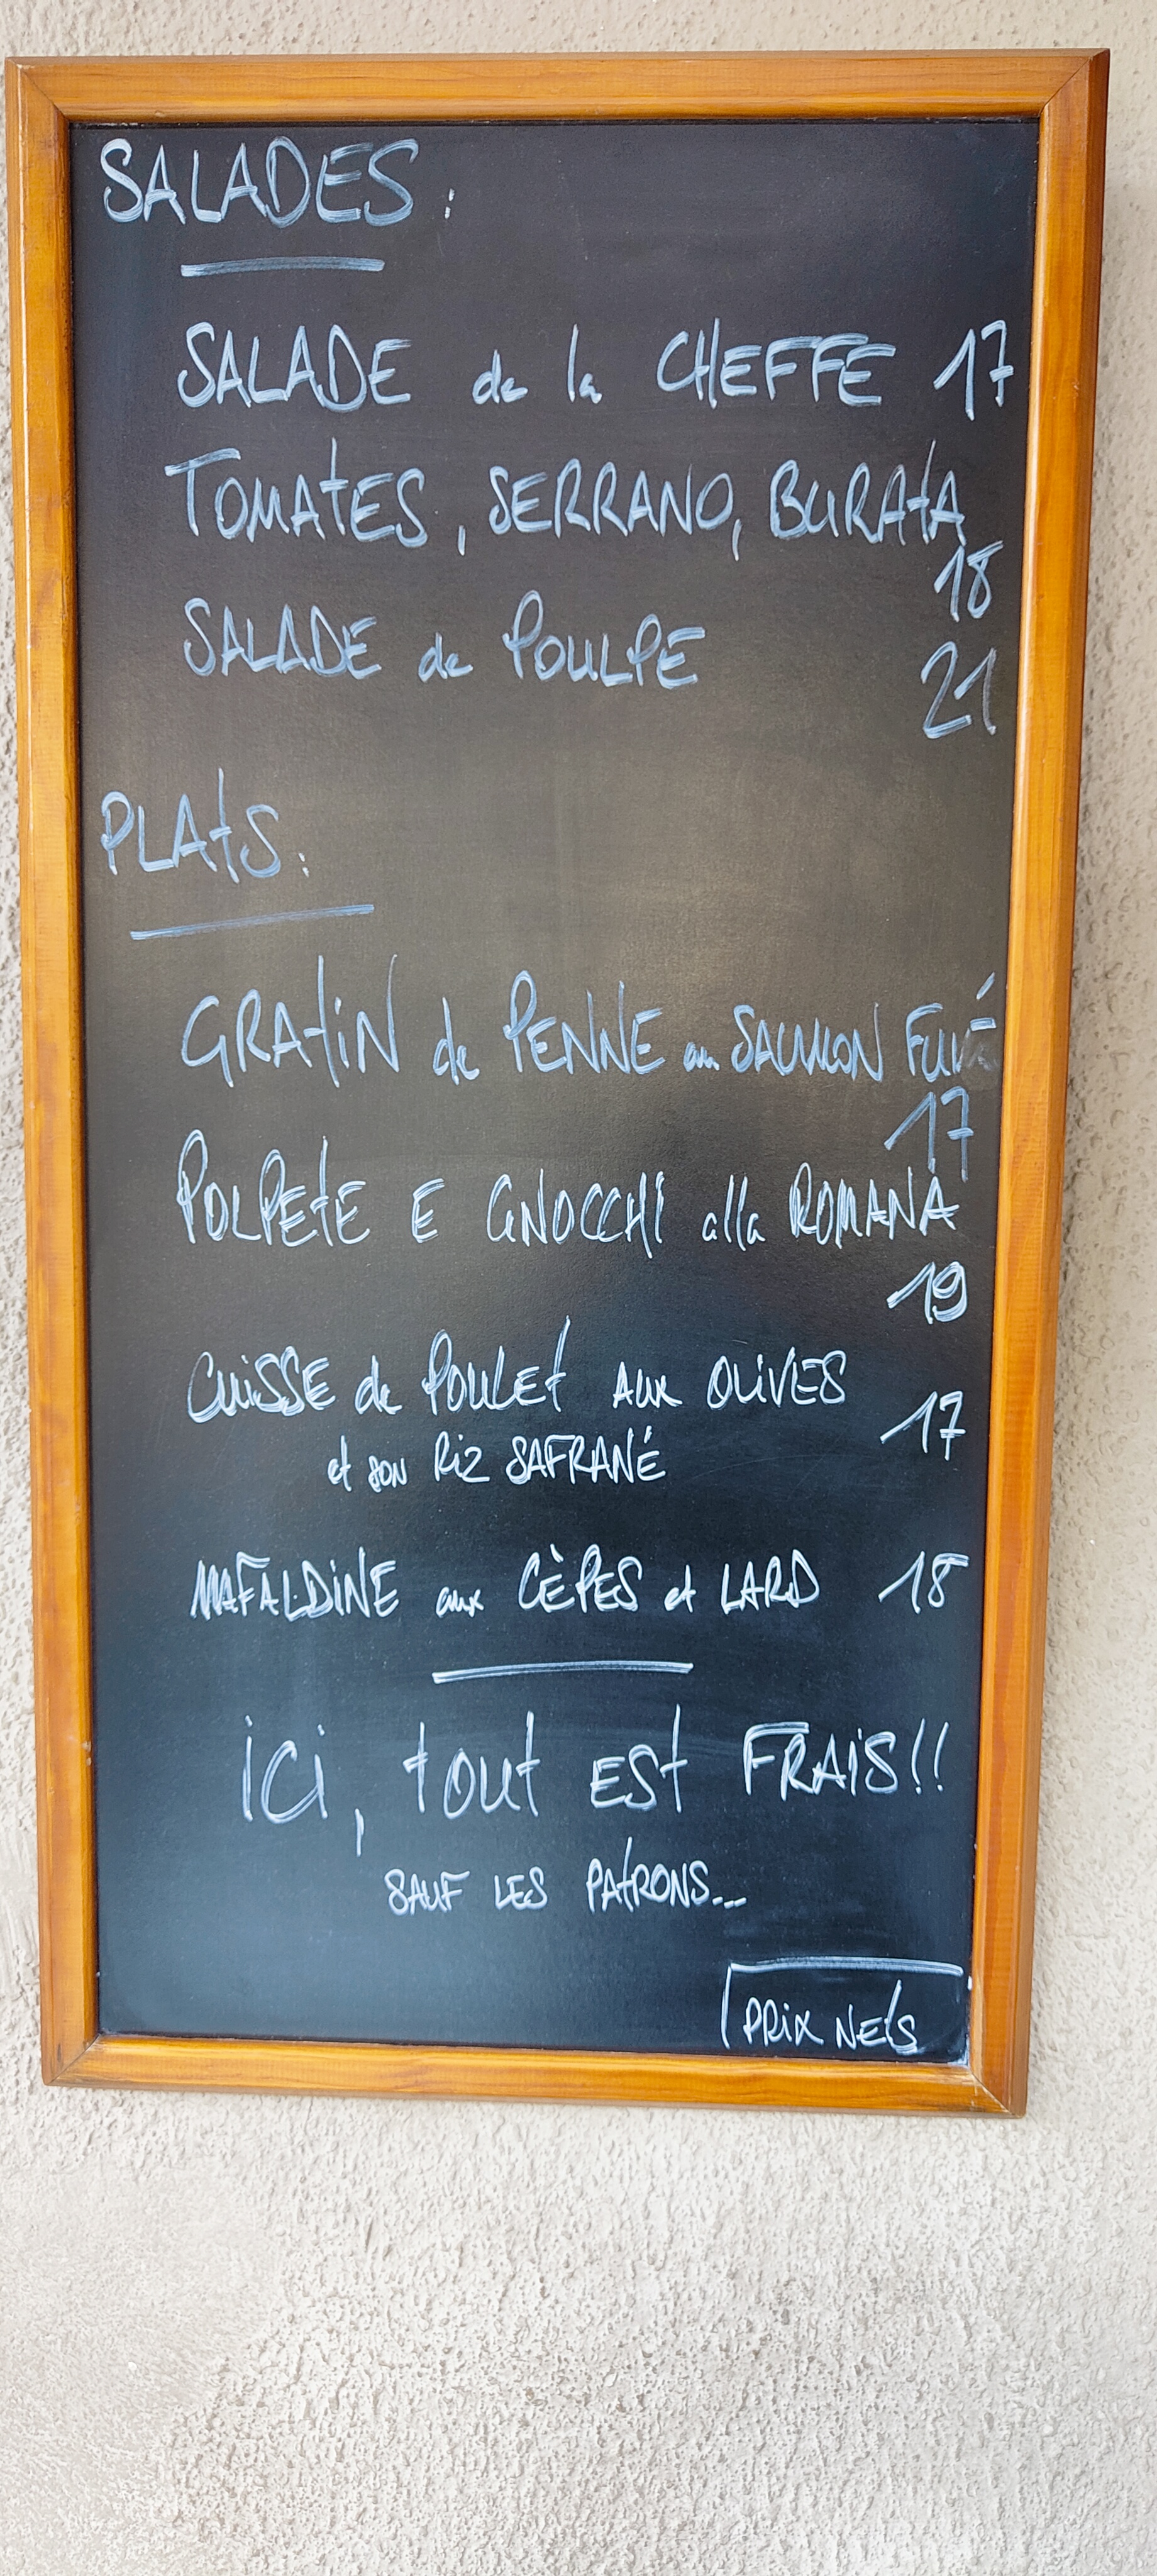 SALADES :
SALADE de la CHEFFE 17
TOMATES, SERRANO, BURATA
18
SALADE de POULPE 21
PLATS :
GRATIN de PENNE au SAUMON FUMÉ
17
POLPETE E GNOCCHI alla ROMANA
19
CUISSE de POULET AUX OLIVES 17
et son Riz SAFRANÉ
MAFALDINE aux CÈPES et LARD 18
ici, tout EST FRAIS!!
SAUF LES PATRONS...
PRIX NETS